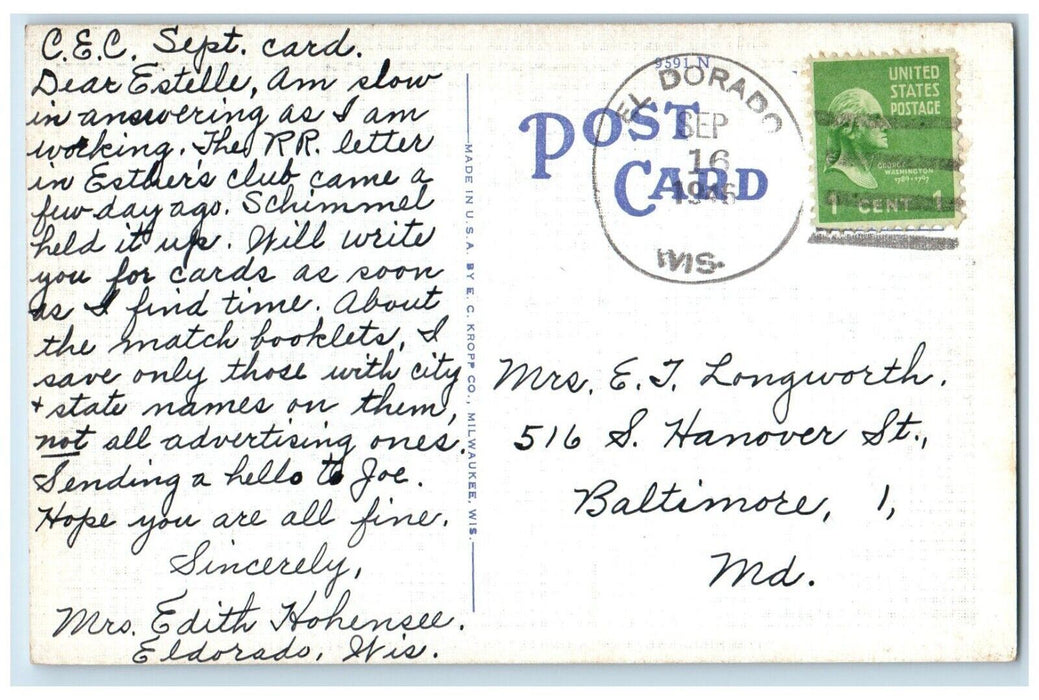 C.E.C. Sept. card.
Dear Estelle, Am slow
in answering as I am
working. The R.R. letter
in Esther's club came a
few day ago. Schimmel
held it up. Will write
you for cards as soon
as I find time. About
the match booklets, I
save only those with city
+ state names on them,
not all advertising ones.
Sending a hello to Joe.
Hope you are all fine.
Sincerely,
Mrs. Edith Hohensee.
Eldorado, Wis.
MADE IN U.S.A. BY E. C. KROPP CO., MILWAUKEE, WIS.
9591 N
POST
CARD
EL DORADO
SEP
16
1946
WIS.
UNITED
STATES
POSTAGE
GEORGE
WASHINGTON
1789-1797
1 CENT 1
Mrs. E. J. Longworth.
516 S. Hanover St.,
Baltimore, 1,
Md.